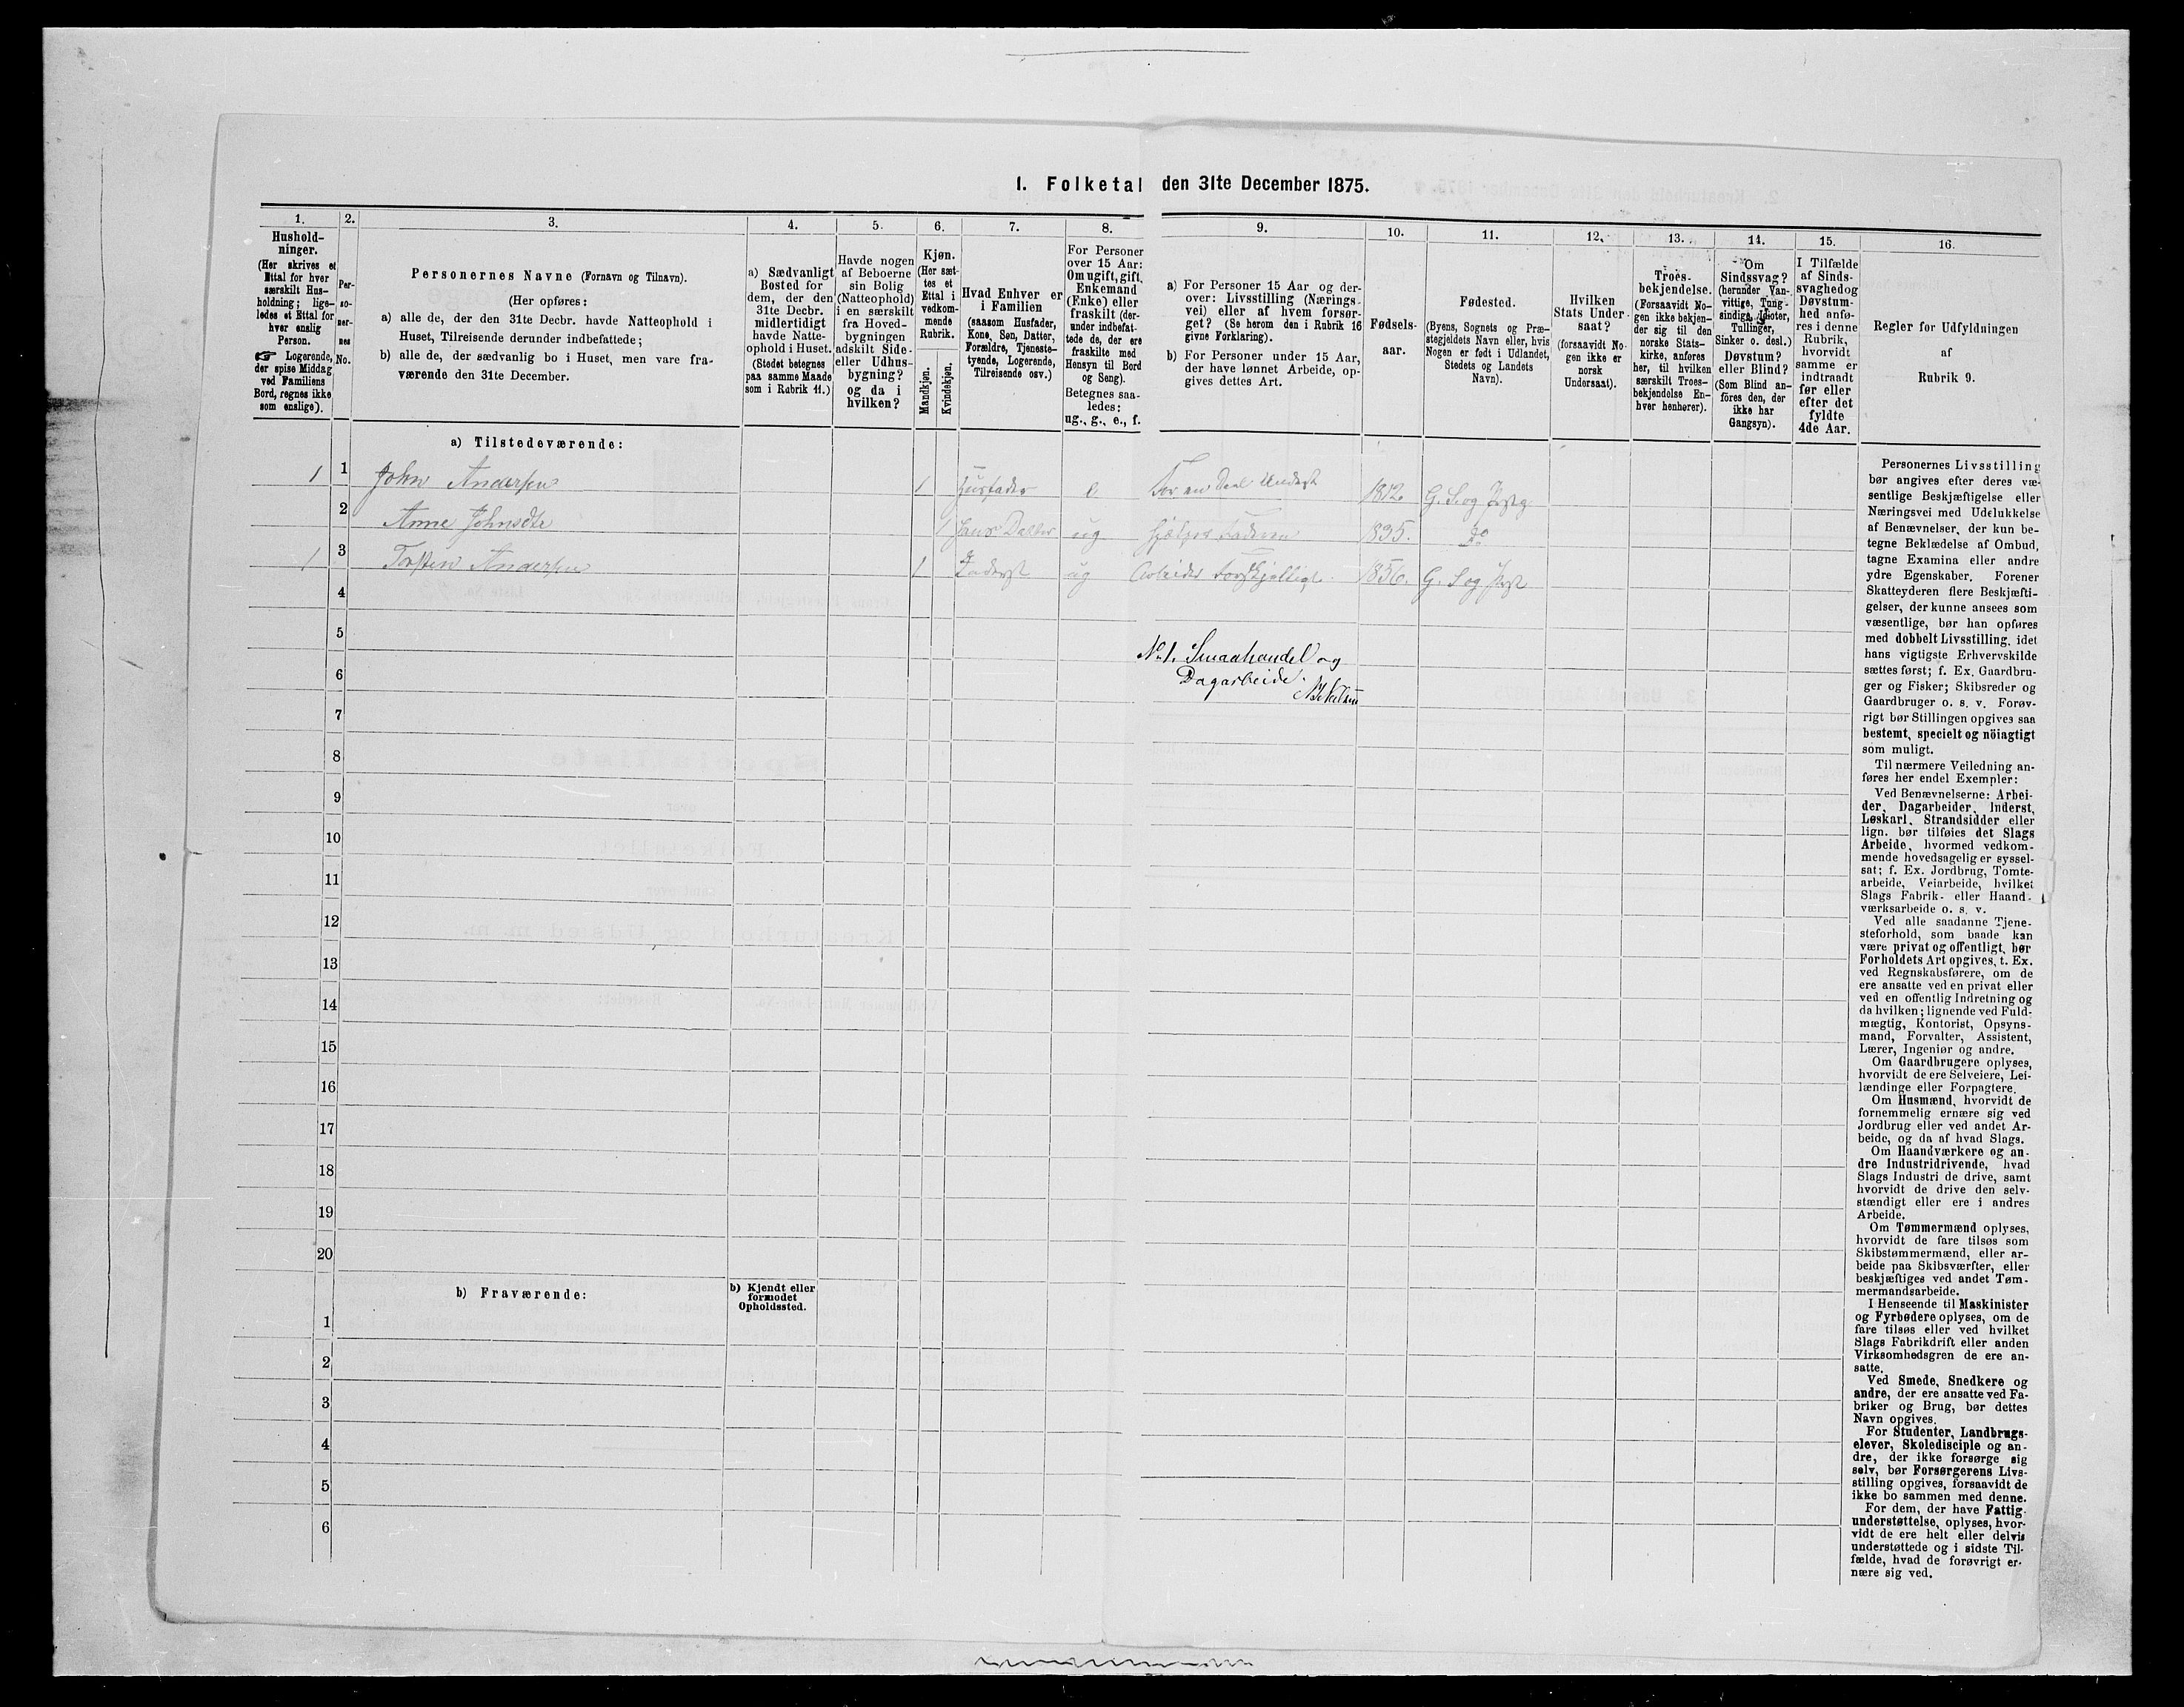 1. Folketal den 31te December 1875.
1.
Hushold-
ninger.
(Her skrives et
Ettal for hver
særskilt Hus-
holdning; lige-
ledes et Ettal for
hver enslig
Person.
☞ Logerende,
der spise Middag
ved Familiens
Bord, regnes ikke
som enslige).
2.
Per-
so-
ner-
nes
No.
3.
Personernes Navne (Fornavn og Tilnavn).
(Her opføres:
a) alle de, der den 31te Decbr. havde Natteophold i
Huset, Tilreisende derunder indbefattede;
b) alle de, der sædvanlig bo i Huset, men vare fra-
værende den 31te December.
4.
a) Sædvanligt
Bosted for
dem, der den
31te Decbr.
midlertidigt
havde Natte-
ophold i Huset.
(Stedet betegnes
paa samme Maade
som i Rubrik 11.)
5.
Havde nogen
af Beboerne
sin Bolig
(Natteophold)
i en særskilt
fra Hoved-
bygningen
adskilt Side-
eller Udhus-
bygning?
og da i
hvilken?
6.
Kjøn.
(Her sæt-
tes et
Ettal i
vedkom-
mende
Rubrik.
Mandkjøn.
Kvindekjøn.
7.
Hvad Enhver er
i Familien
(saasom Husfader,
Kone, Søn, Datter,
Forældre, Tjeneste-
tyende, Logerende,
Tilreisende osv.)
8.
For Personer
over 15 Aar:
Om ugift, gift,
Enkemand
(Enke) eller
fraskilt (der-
under indbefat-
tede de, der ere
fraskilte med
Hensyn til Bord
og Seng).
Betegnes saa-
ledes:
ug., g., e., f.
9.
a) For Personer 15 Aar og der-
over: Livsstilling (Nærings-
vei) eller af hvem forsør-
get? (Se herom den i Rubrik 16
givne Forklaring).
b) For Personer under 15 Aar,
der have lønnet Arbeide, op-
gives dettes Art.
10.
Fødsels-
aar.
11.
Fødested.
(Byens, Sognets og Præ-
stegjeldets Navn eller, hvis
Nogen er født i Udlandet,
Stedets og Landets
Navn).
12.
Hvilken
Stats Under-
saat?
(forsaavidt No-
gen ikke er
norsk
Undersaat).
13.
Troes-
bekjendelse.
(Forsaavidt No-
gen ikke bekjen-
der sig til den
norske Stats-
kirke, anføres
her, til hvilken
særskilt Troes-
bekjendelse En-
hver henhører).
14.
Om
Sindssvag?
(herunder Van-
vittige, Tung-
sindige, Idioter,
Tullinger,
Sinker o. desl.)
Døvstum?
eller Blind?
(Som Blind an-
føres den, der
ikke har
Gangsyn).
15.
I Tilfælde
af Sinds-
svaghed og
Døvstum-
hed anfø-
res i denne
Rubrik,
hvorvidt
samme er
indtraadt
før eller
efter det
fyldte
4de Aar.
16.
Regler for Udfyldningen
af
Rubrik 9.
a) Tilstedeværende:
1 1 John Andersen 1 Husfader e For en Deel Underst 1812. G. S og Prstg
2 Anne Johnsdtr 1 Hans Datter ug Hjælper Faderen 1835. do
1 3 Torsten Andersen 1 Inderst ug Arbeider Forskjelligt. 1856. G. S og Prst
4
5
No. 1. Smaahandel og
6
Dagarbeide.
7
8
9
10
11
12
13
14
15
16
17
18
19
20
b) Fraværende:
b) Kjendt eller
formodet
Opholdssted.
1
2
3
4
5
6
Personernes Livsstilling
bør angives efter deres væ-
sentlige Beskjæftigelse eller
Næringsvei med Udelukkelse
af Benævnelser, der kun be-
tegne Beklædelse af Ombud,
tagne Examina eller andre
ydre Egenskaber. Forener
Skatteyderen flere Beskjæfti-
gelser, der kunne ansees som
væsentlige, bør han opføres
med dobbelt Livsstilling, idet
hans vigtigste Erhvervskilde
sættes først; f. Ex. Gaardbru-
ger og Fisker; Skibsreder og
Gaardbruger o. s. v. Forøv-
rigt bør Stillingen opgives saa
bestemt, specielt og nöiagtigt
som muligt.
Til nærmere Veiledning an-
føres her endel Exempler:
Ved Benævnelserne: Arbei-
der, Dagarbeider, Inderst,
Løskarl, Strandsidder eller
lign. bør tilføies det Slags
Arbeide, hvormed vedkom-
mende hovedsagelig er syssel-
sat; f. Ex. Jordbrug, Tomte-
arbeide, Veiarbeide, hvilket
Slags Fabrik- eller Haand-
værksarbeide o. s. v.
Ved alle saadanne Tjene-
steforhold, som baade kan
være privat og offentligt, bør
Forholdets Art opgives, t. Ex.
ved Regnskabsførere, om de
ere ansatte ved en privat eller
ved en offentlig Indretning og
da hvilken; lignende ved Fuld-
mægtig, Kontorist, Opsyns-
mand, Forvalter, Assistent,
Lærer, Ingeniør og andre.
Om Gaardbrugere oplyses,
hvorvidt de ere Selveiere, Lei-
lændinge eller Forpagtere.
Om Husmænd, hvorvidt de
fornemmelig ernære sig ved
Jordbrug eller ved andet Ar-
beide, og da af hvad Slags.
Om Haandværkere og an-
dre Industridrivende, hvad
Slags Industri de drive, samt
hvorvidt de drive den selv-
stændigt eller ere i andres
Arbeide.
Om Tømmermænd oplyses,
hvorvidt de fare tilsøs som
Skibstømmermænd, eller ar-
beide paa Skibsværfter, eller
beskjæftiges ved andet Tøm-
mermandsarbeide.
I Henseende til Maskinister
og Fyrbødere oplyses, om de
fare tilsøs eller ved hvilket
Slags Fabrikdrift eller anden
Virksomhedsgren de ere an-
satte.
Ved Smede, Snedkere og
andre, der ere ansatte ved Fa-
briker og Brug, bør dettes
Navn opgives.
For Studenter, Landbrugs-
elever, Skoledisciple og an-
dre, der ikke forsørge sig
selv, bør Forsørgerens Livs-
stilling opgives, forsaavidt de
ikke bo sammen med denne.
For dem, der have Fattig-
understøttelse, oplyses, hvor-
vidt de ere helt eller delvis
understøttede og i sidste Til-
fælde, hvad de forøvrigt er-
nære sig ved.